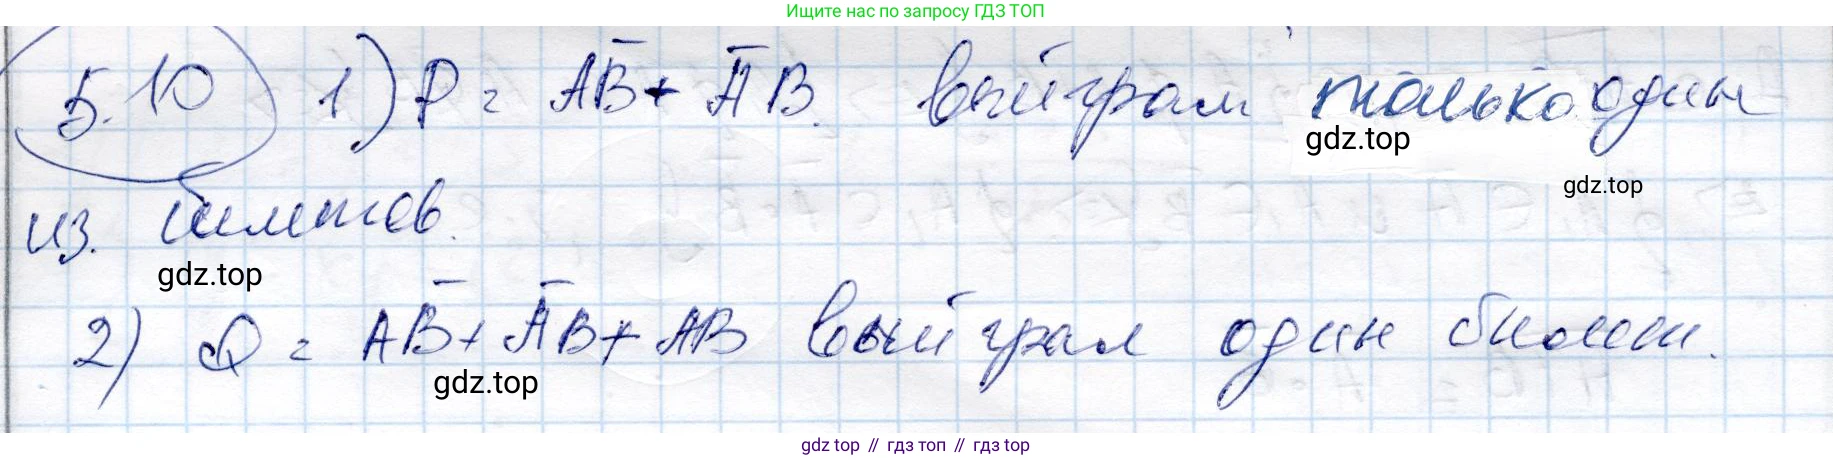 Ищите нас по запросу ГДЗ ТОП
5.10 1) P = AB̅ + A̅B. выйграл только один
gdz.top
gdz.top
из. билетов.
gdz.top
2) Q = AB̅ + A̅B + AB выйграл один билет.
gdz.top
gdz top // гдз топ // гдз top